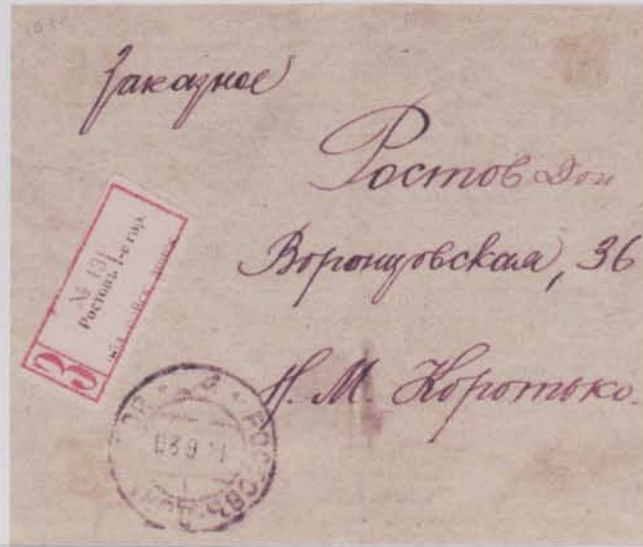 Заказное
Ростов Дон
Воронцовская, 36
Н. М. Коротько.
№ 131
Ростовъ 1-е гор.
З